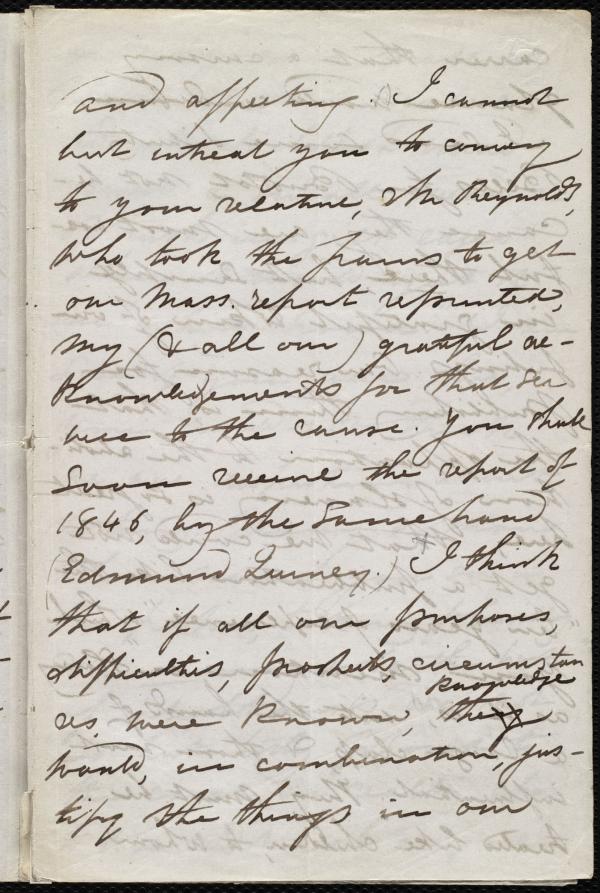 and affecting. I cannot
but intreat you to convey
to your relative, Mr Reynolds,
who took the pains to get
our Mass. report reprinted,
my (& all our) grateful ac-
knowledgements for that ser
vice to the cause. You shall
soon receive the report of
1846, by the same hand
(Edmund Quincy.) + I think
that if all our purposes,
difficulties, prospects, circumstan
knowledge
ces, were known, they
would, in combination, jus-
tify the things in our